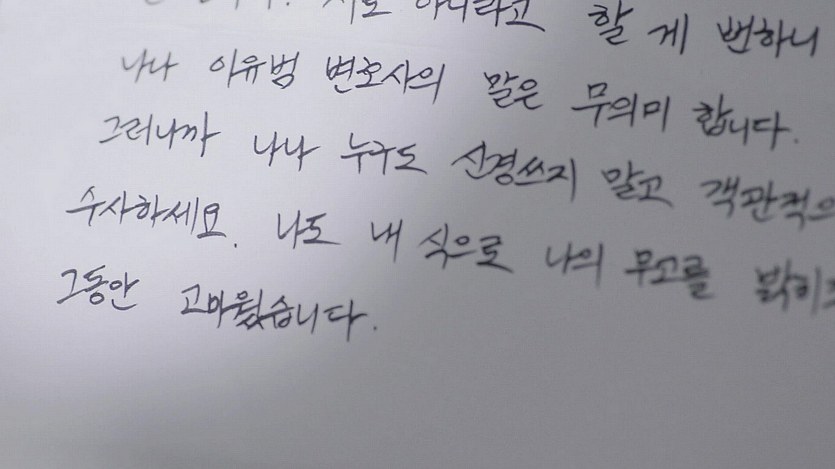 아니라고 할 게 뻔하니
나나 이유범 변호사의 말은 무의미 합니다.
그러니까 나나 누구도 신경쓰지 말고 객관적으
수사하세요. 나도 내 식으로 나의 무고를 밝히
그동안 고마웠습니다.